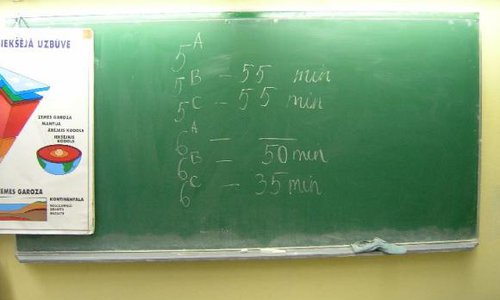 IEKŠĒJĀ UZBŪVE
ZEMES GAROZA
MANTIJA
ĀRĒJAIS KODOLS
IEKŠĒJAIS
KODOLS
EMES GAROZA
KONTINENTĀLĀ
5A
5B - 55 min
5C - 55 min
6A
6B - 50 min
6C - 35 min